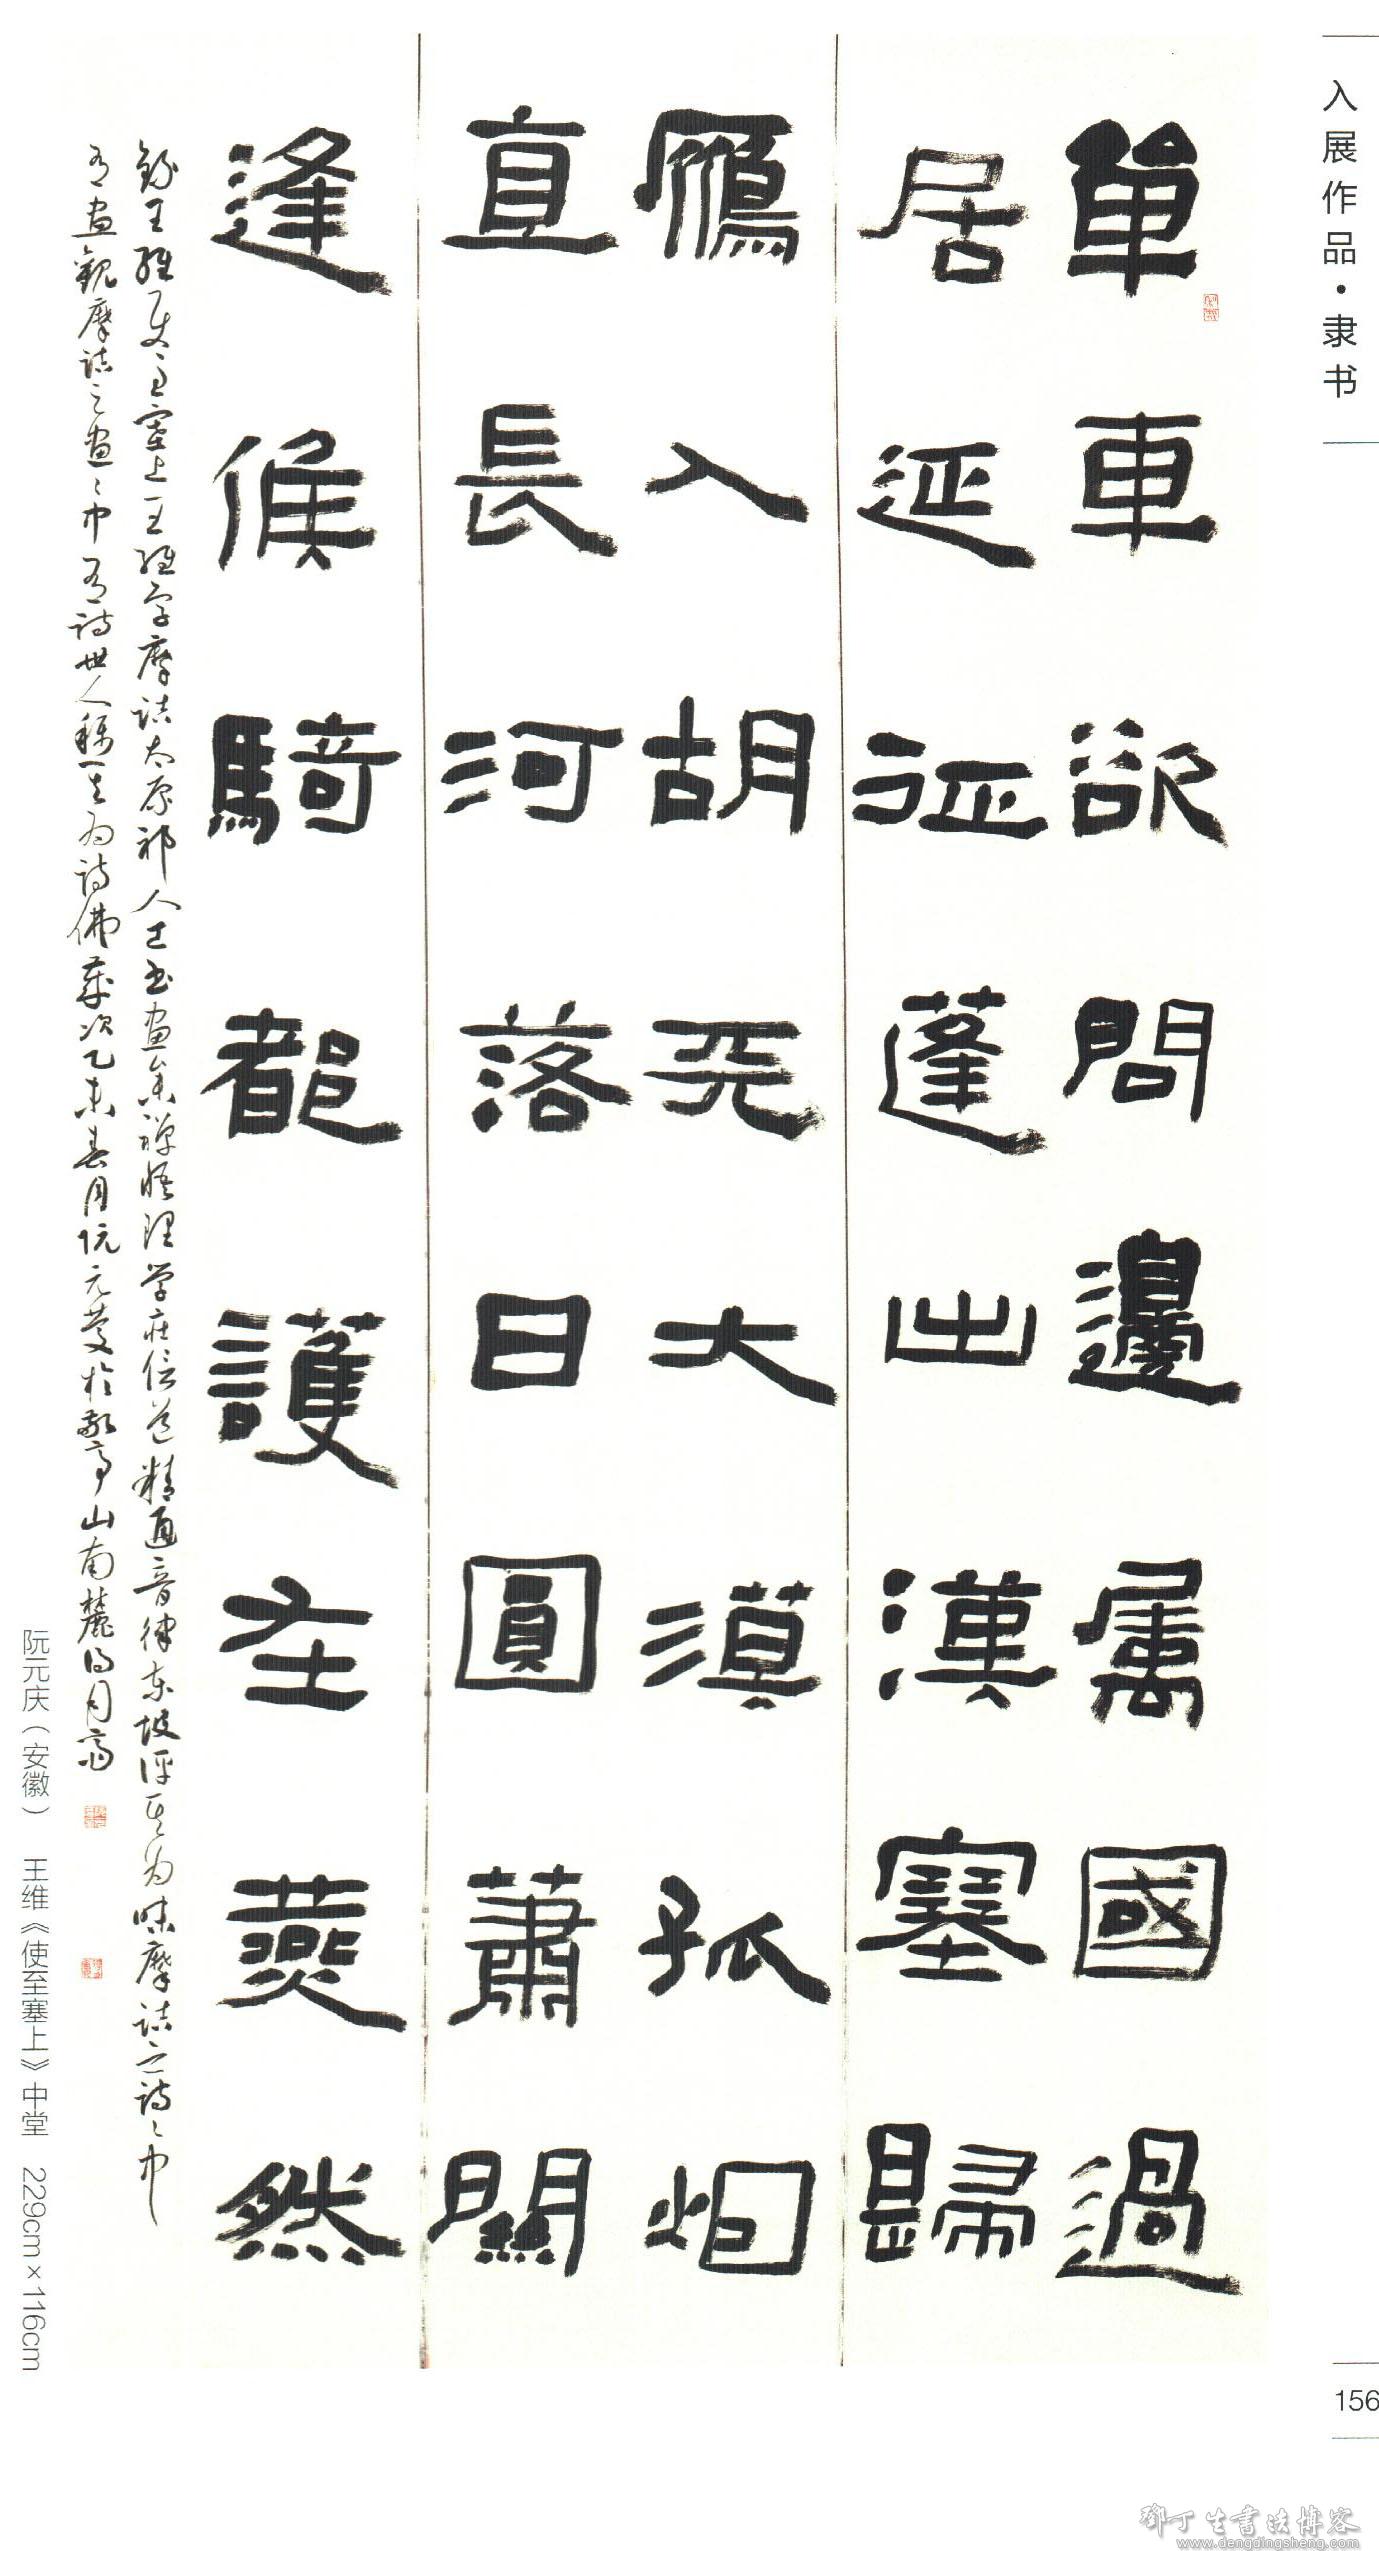 入展作品·隶书
單車欲問邊屬國過
居延征蓬出漢塞歸
鴈入胡天大漠孤烟
直長河落日圓蕭關
逢候騎都護在燕然
錄王維使至塞上王維字摩詰太原祁人工书画參禪悟理学莊信道精通音律東坡評其为味摩詰之詩〻中
有画觀摩詰之画〻中有詩世人稱其为詩佛歲次乙未春月阮元慶於敬亭山南麓得月齋
阮元庆（安徽） 王维《使至塞上》中堂 229cm×116cm
156
鄧丁生書法博客
www.dengdingsheng.com